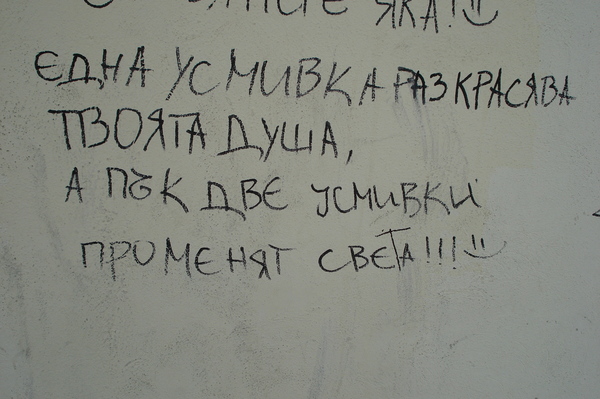 ЯКА!
ЕДНА УСМИВКА РАЗКРАСЯВА
ТВОЯТА ДУША,
А ПЪК ДВЕ УСМИВКИ
ПРОМЕНЯТ СВЕТА!!!